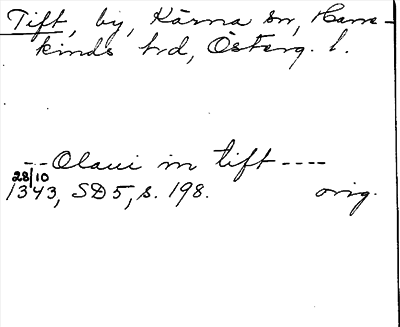 Tift, by, Kärna sn, Hane-
kinds hd, Österg. l.
---Olaui in tift----
28/10
1343, SD5, s. 198. orig.